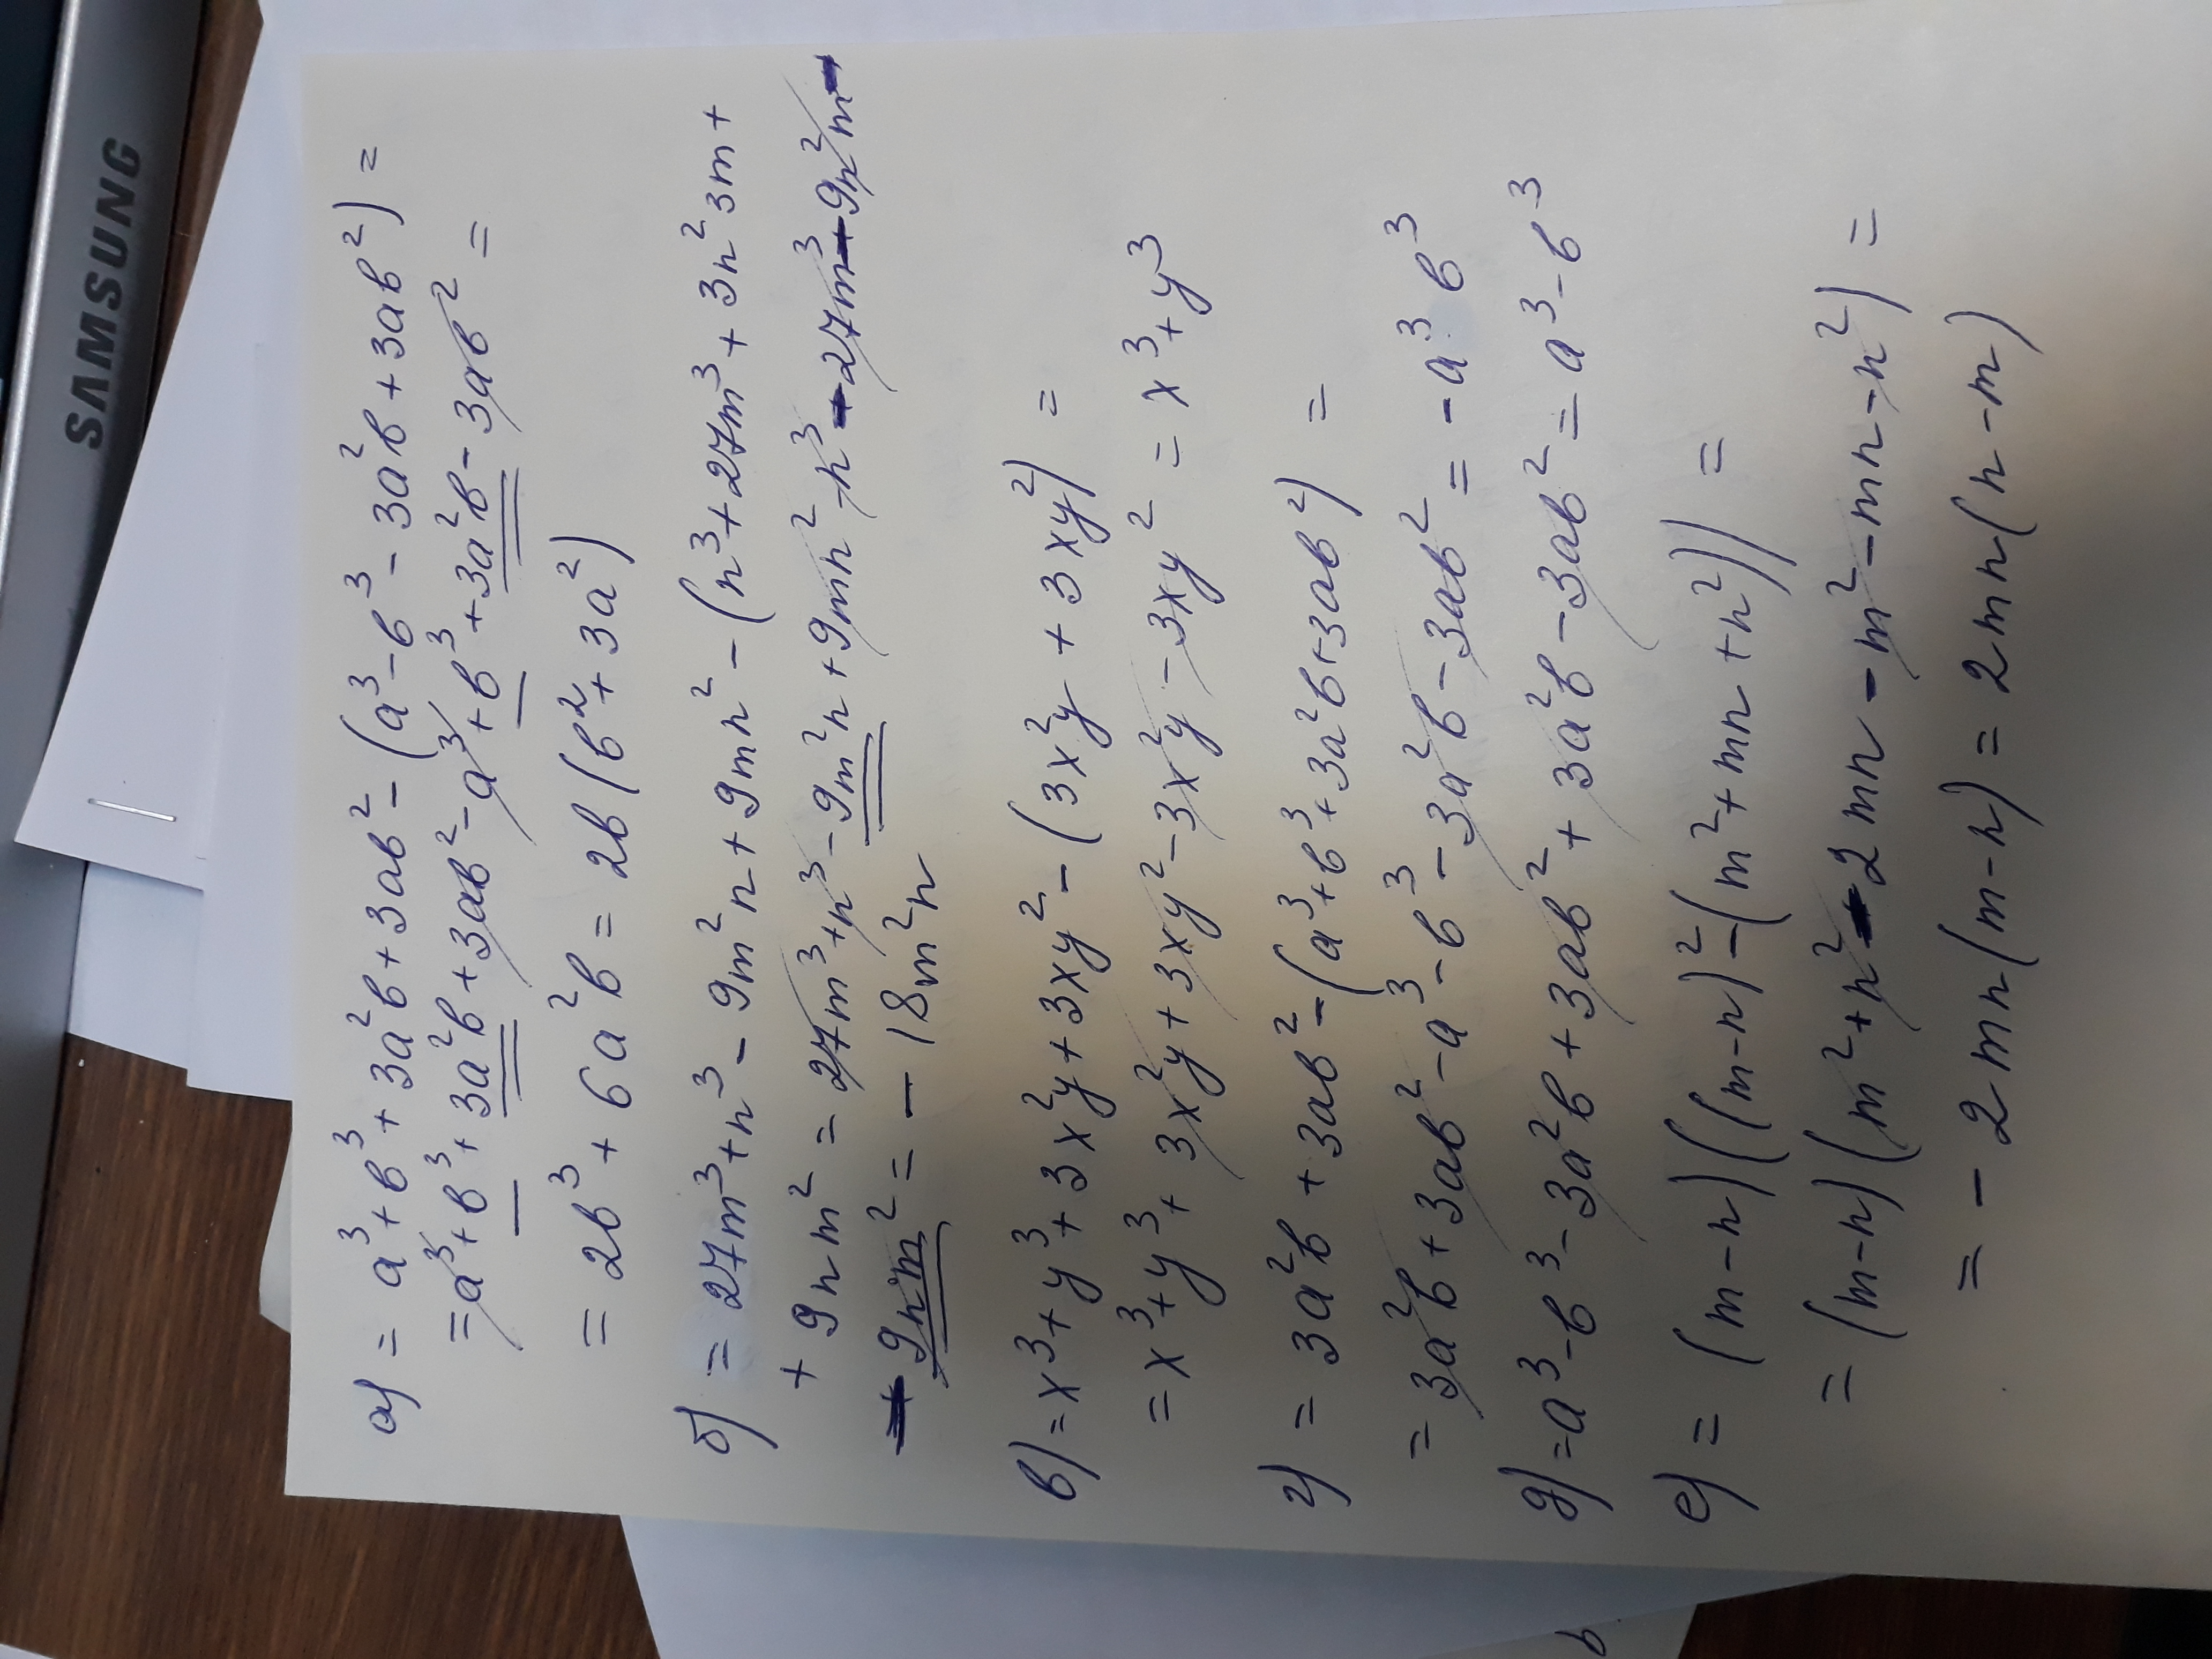 SAMSUNG
а) = a³+b³+3a²b+3ab²-(a³-b³-3a²b+3ab²) =
= a³+b³+3a²b+3ab²-a³+b³+3a²b-3ab² =
= 2b³+6a²b = 2b(b²+3a²)
б) = 27m³+n³-9m²n+9mn²-(n³+27m³+3n²3m+
+9nm²= 27m³+n³-9m²n+9mn²-n³-27m³-9n²m-
-9nm² = -18m²n
в) = x³+y³+3x²y+3xy²-(3x²y+3xy²) =
= x³+y³+3x²y+3xy²-3x²y-3xy² = x³+y³
г) = 3a²b+3ab²-(a³+b³+3a²b+3ab²) =
= 3a²b+3ab²-a³-b³-3a²b-3ab² = -a³ b³
д) = a³-b³-3a²b+3ab²+3a²b-3ab² = a³-b³
е) = (m-n)((m-n)²-(m²+mn+n²)) =
= (m-n)(m²+n²-2mn-m²-mn-n²) =
= -2mn(m-n) = 2mn(n-m)